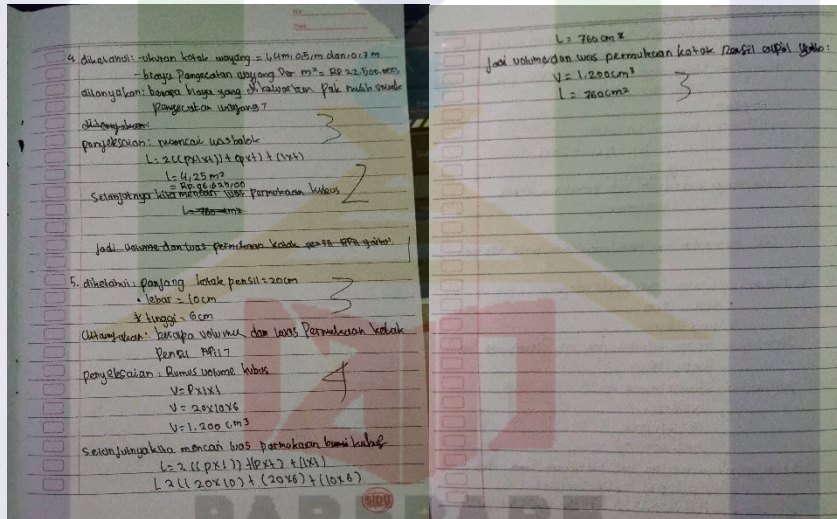 4. diketahui: -ukuran kotak wayang = 1,4 m, 0,5, m dan 0,7 m
- biaya Pangecatan wayang Per m² = RP 22.500.000,
ditanyakan: berapa biaya yang di keluarkan pak muslih untuk
pangecatan wayang?
ditanyakan:
3
penyelesaian: mancari luas balok
L = 2((Px1x)) + (pxt) + (1xt)
L = 4,25 m²
= RP. 96.625,00
2
Selanjutnya kita mencari luas permukaan kubus
L = 760 cm²
Jadi volume dan luas permukaan kotak pensil Apil yaitu:
1
5. diketahui: panjang kotak pensil = 20 cm
• lebar = 10 cm
3
* tinggi = 6 cm
ditanyakan: berapa volume dan luas Permukaan kotak
Pensil Apil?
penyelesaian: Rumus volume kubus
4
V = Px1x1
V = 20x10x6
V = 1.200 cm³
Selanjutnya kita mencari luas permukaan kubus
L = 2 ((Px1)) + (Pxt) + (1xt)
L 2 ((20x10) + (20x6) + (10x6)
SIDU
L = 760 cm²
Jadi volume dan luas permukaan kotak Pensil apil yaitu:
V = 1.200 cm³
L = 760 cm²
3